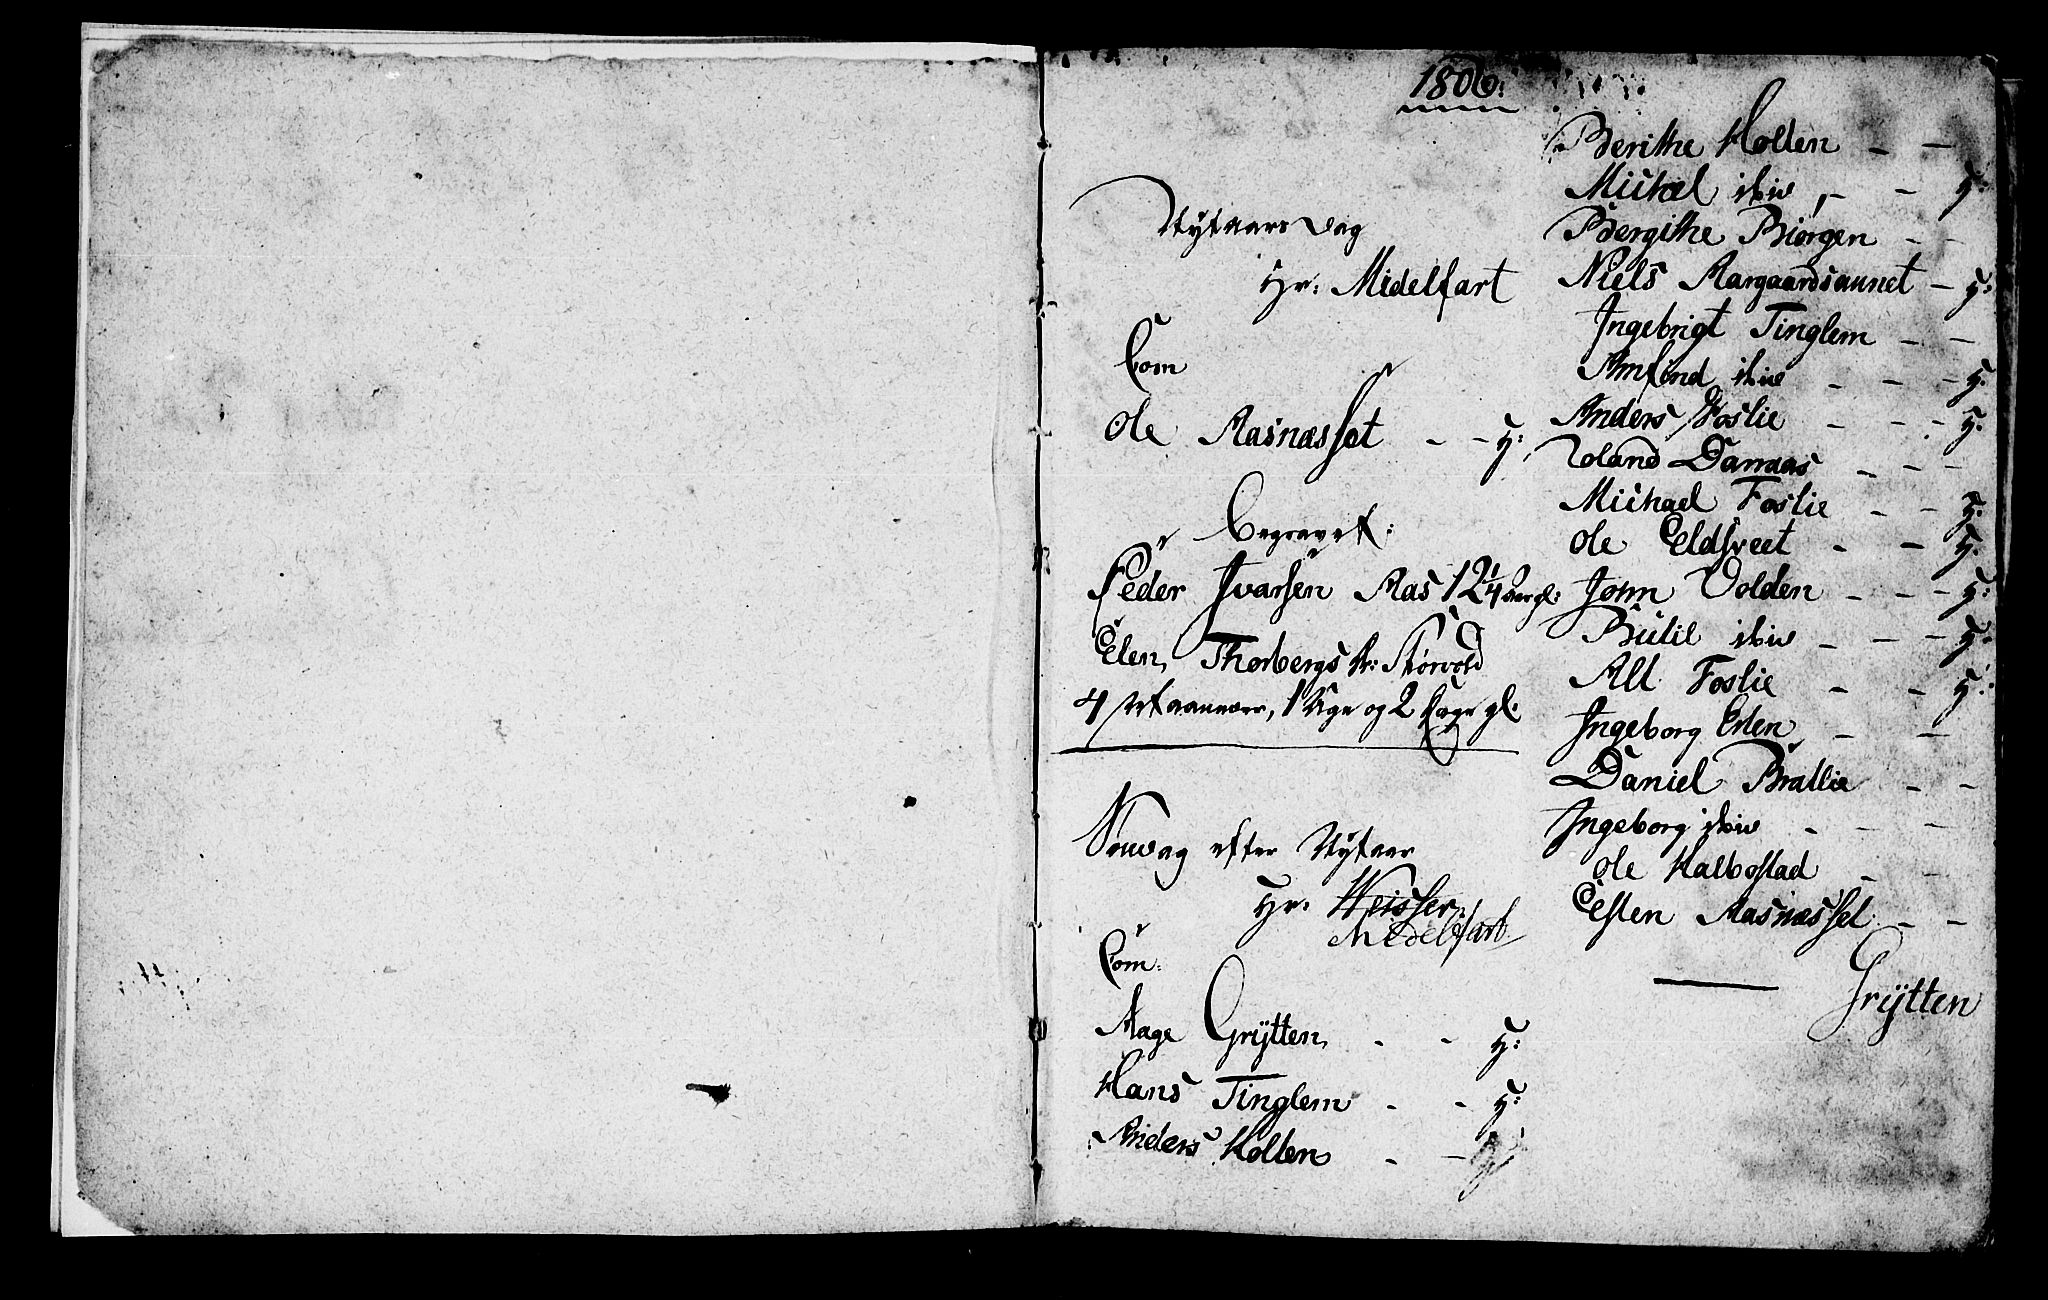 1806:
Nytaars Dag
Hr: Midelfart
Com
Ole Aasnæsset - - H:
Begravet:
Peder Ivarsen Aas 12 1/4 Aar gl:
Elen Thorbergs Dr: Størvold
4 Maaneder, 1 Uge og 2 Dage gl:
Søndag efter Nytaar
Hr: Weisser
Midelfart
Com:
Aage Grÿtten - - H:
Hans Tinglem - - H:
Anders Holten - -
Berithe Holten - -
Michel ibid - - H:
Bergithe Biörgen - -
Niels Aargaardsaunet - H:
Ingebrigt Tinglem - -
Amfind ibid - - - H.
Anders Foslie - - - H.
Roland Damaas - - -
Michael Foslie - - H.
Ole Eldsveet - - H.
John Volden - - - H:
Butil ibid - - - H.
Alt Foslie - - H:
Ingeborg Eden - -
Daniel Brallie - -
Ingeborg ibid - - -
Ole Kalbostad - -
Esten Aasnæsset - -
Grÿtten